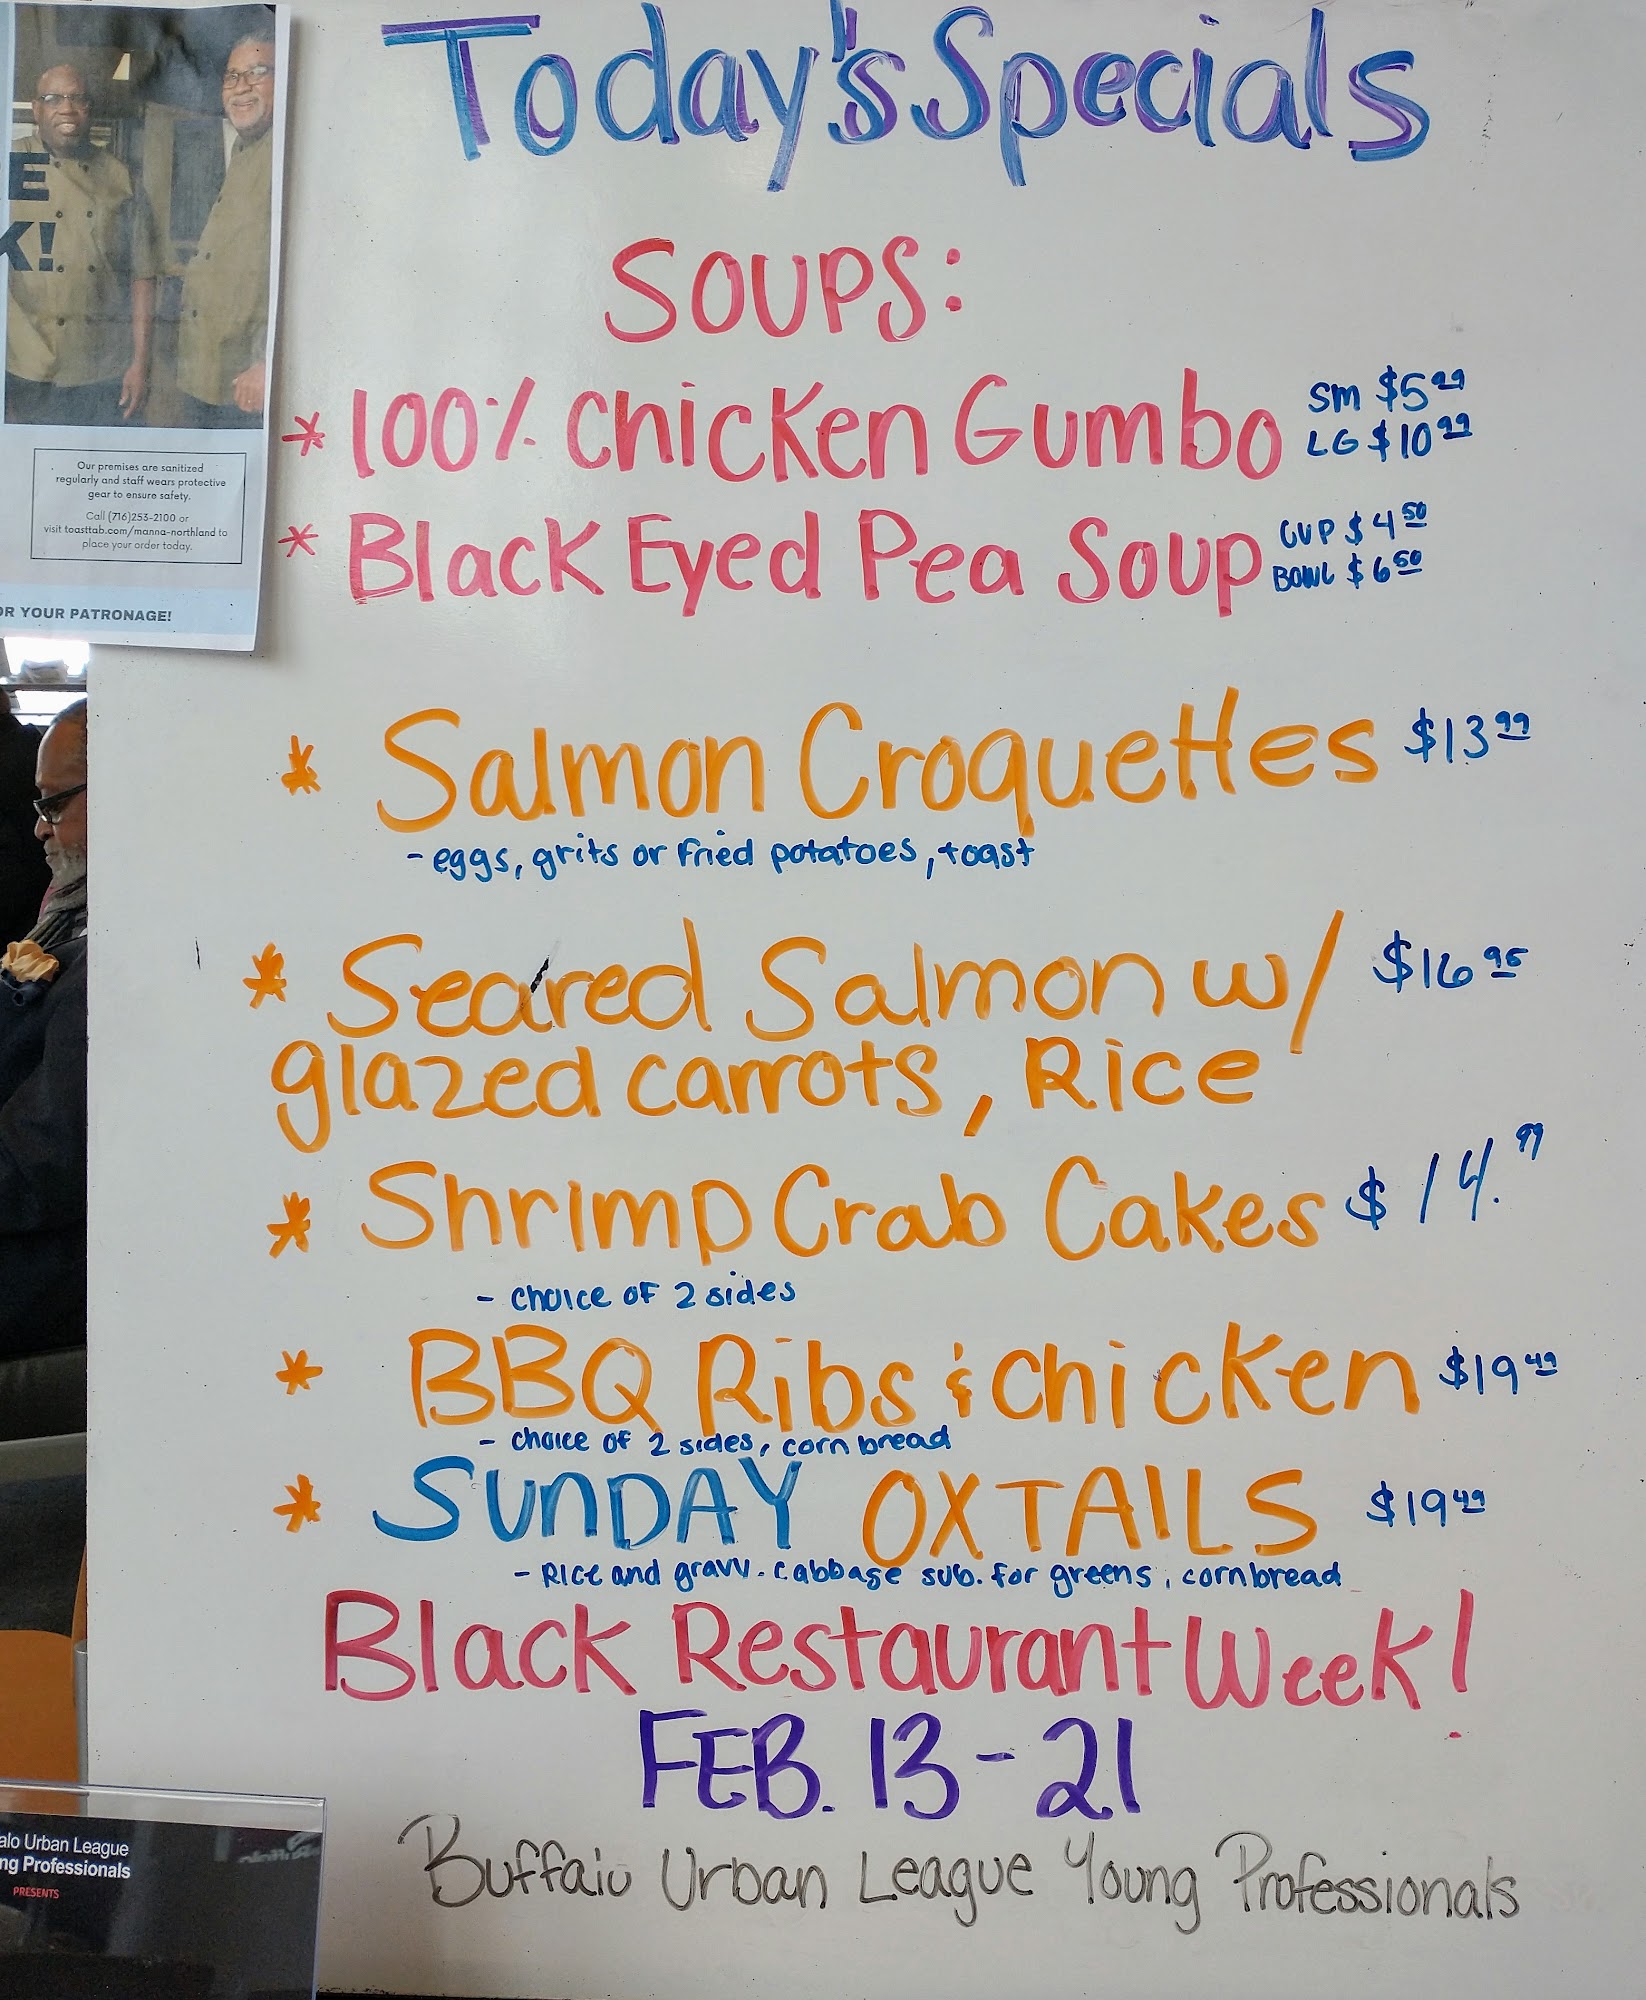 E
K!
Our premises are sanitized
regularly and staff wears protective
gear to ensure safety.
Call (716)253-2100 or
visit toasttab.com/manna-northland to
place your order today.
OR YOUR PATRONAGE!
Today's Specials
SOUPS:
* 100% Chicken Gumbo SM $5.99
LG $10.99
* Black Eyed Pea Soup CUP $4.50
BOWL $6.50
* Salmon Croquettes $13.99
- eggs, grits or fried potatoes, toast
* Seared Salmon w/ $16.95
glazed carrots, Rice
* Shrimp Crab Cakes $14.99
- choice of 2 sides
* BBQ Ribs & chicken $19.49
- choice of 2 sides, corn bread
* SUNDAY OXTAILS $19.49
- Rice and gravy. cabbage sub. for greens, cornbread
Black Restaurant Week!
FEB. 13-21
Buffalo Urban League Young Professionals
alo Urban League
ng Professionals
PRESENTS